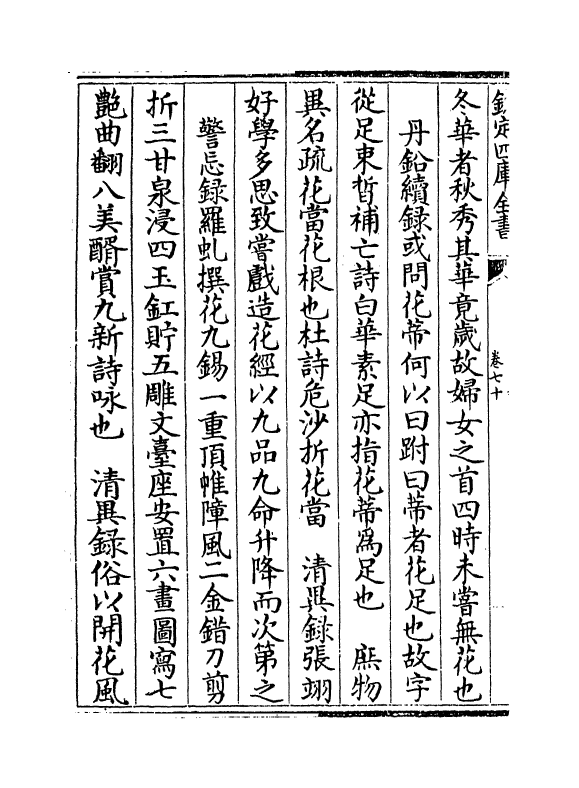 欽定四庫全書
卷七十
冬華者秋秀其華竟歲故婦女之首四時未嘗無花也
丹鉛續錄或問花蔕何以曰跗曰蔕者花足也故字
從足束晳補亡詩白華素足亦指花蔕為足也　庶物
異名疏花當花根也杜詩危沙折花當　清異録張翊
好學多思致嘗戲造花經以九品九命升降而次第之
警忘録羅虬撰花九錫一重頂帷障風二金錯刀剪
折三甘泉浸四玉缸貯五雕文臺座安置六畫圖寫七
艶曲翻八美醑賞九新詩咏也　清異録俗以開花風